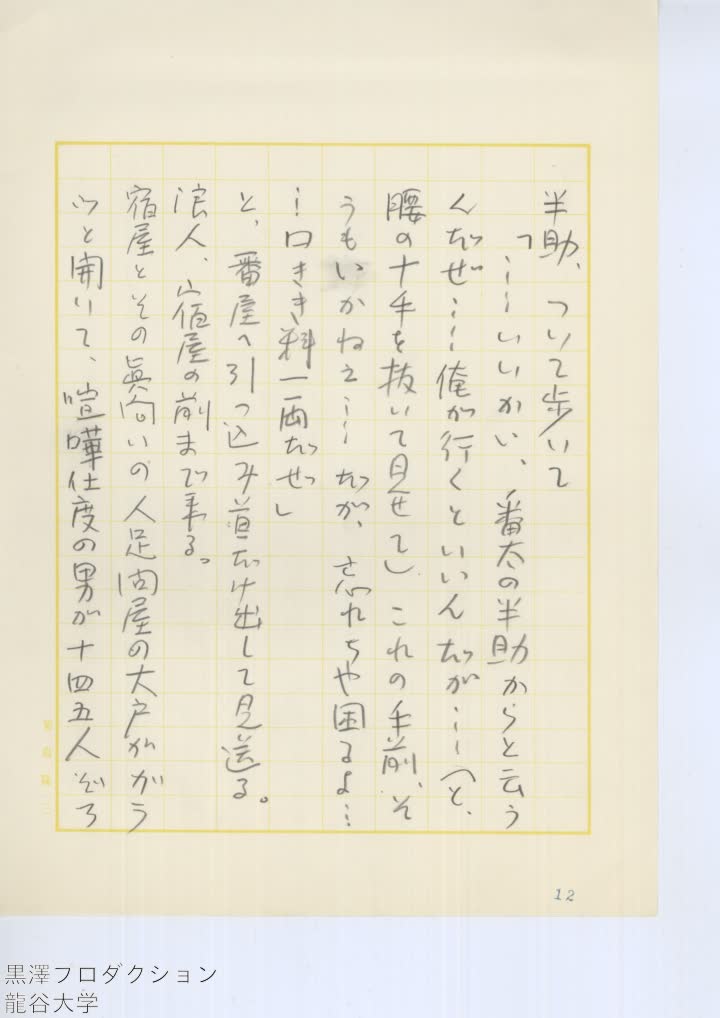 半助、ついて歩いて
「……いいかい、番太の半助からと云う
んだぜ……俺が行くといいんだが……(と、
腰の十手を抜いて見せて)これの手前、そ
うもいかねえ……だが、忘れちや困るよ…
…口きき料一両だぜ」
と、番屋へ引っ込み首だけ出して見送る。
浪人、宿屋の前まで来る。
宿屋とその眞向いの人足問屋の大戸ががう
ッと開いて、喧嘩仕度の男が十四五人ぞろ
12
黒澤プロダクション
龍谷大学